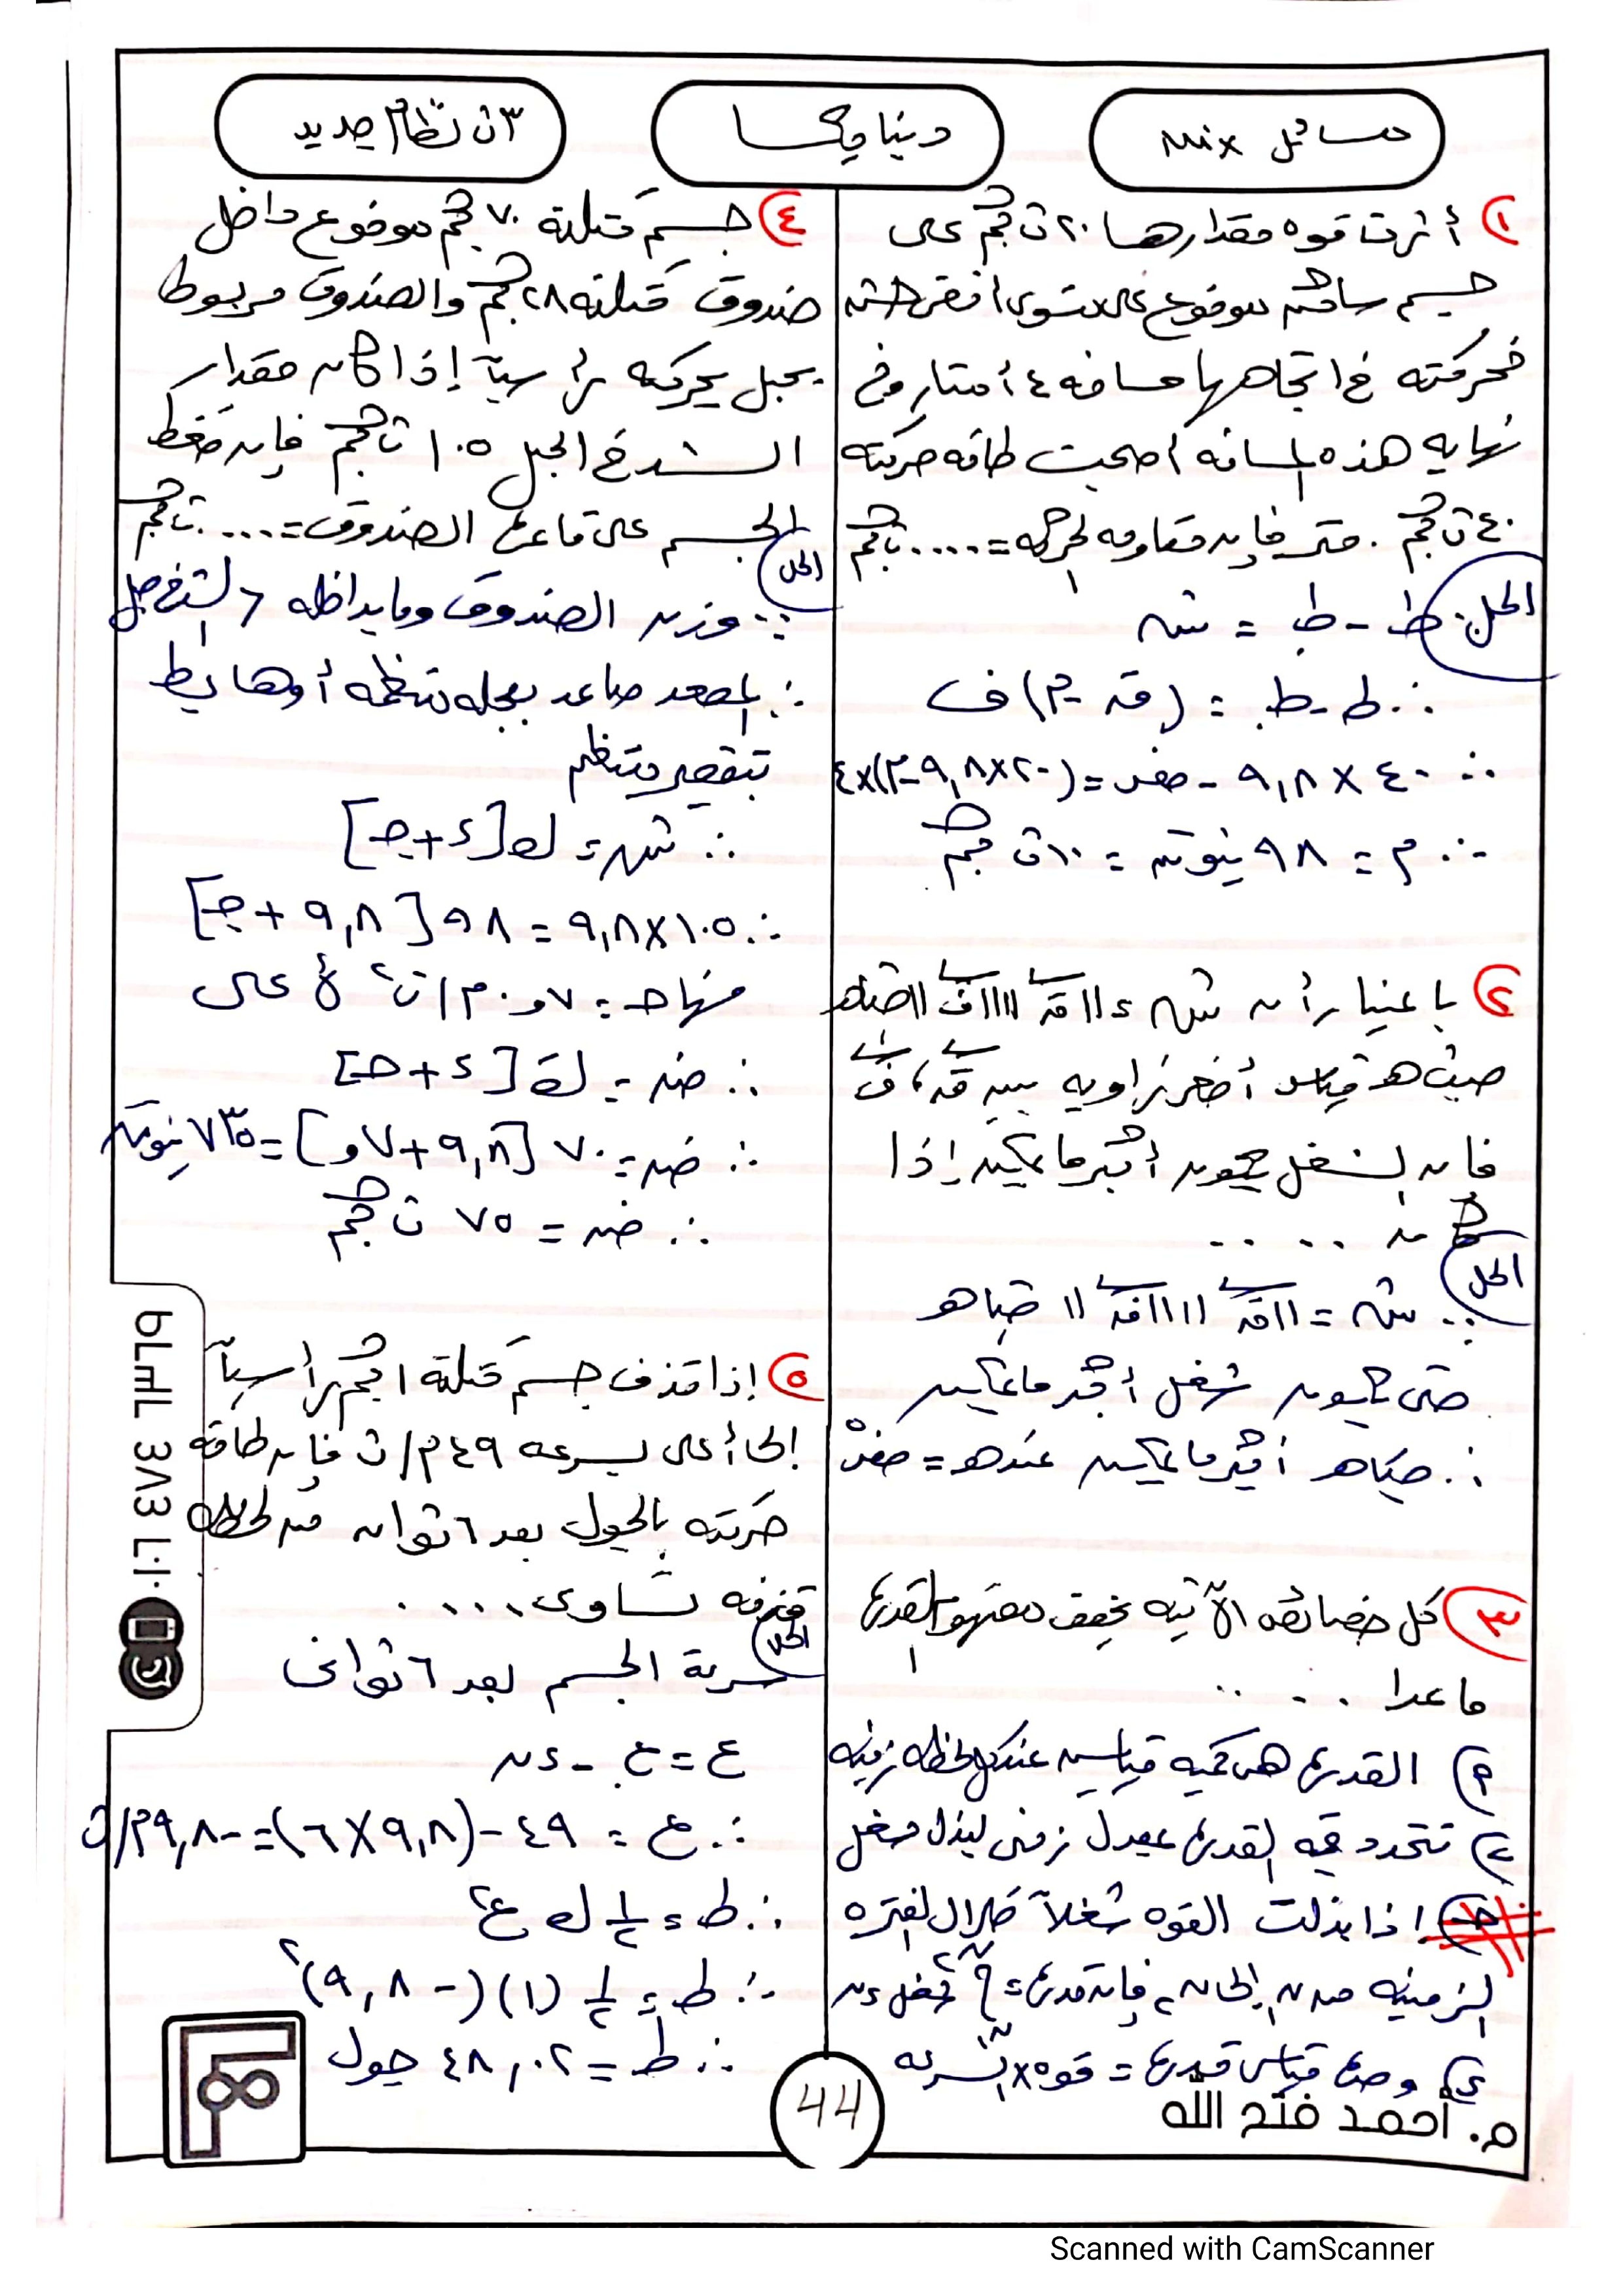 مسائل Mix
ديناميكا
٣ث نظام جديد
١) أثرت قوه مقدارها ٢٠ ث كجم على
جسم ساكن موضوع على مستوى أفقى خشن
فحركته فى اتجاهها مسافه ٤ أمتار وفى
نهايه هذه المسافه أصبحت طاقه حركته
٤٠ ث كجم . متر فإن مقاومه الحركه = .... ث كجم
الحل
ط - ط. = ش
∴ ط - ط. = (ق - م) ف
∴ ٤٠ × ٩,٨ - صفر = (٢٠×٩,٨ - م)×٤
∴ م = ٩٨ نيوتن = ١٠ ث كجم
٢) باعتبار أن ش = ||ق|| ||ف|| حتاهـ
حيث هـ قياس أصغر زاويه بين ق ، ف
فإن الشغل يكون أكبر ما يمكن إذا
كان ....
الحل
∵ ش = ||ق|| ||ف|| حتاهـ
حتى يكون شغل أكبر ما يمكن
∴ حتاهـ أكبر ما يمكن عند هـ = صفر°
٣) كل خصائص الآتيه تحقق مفهوم القدرة
ما عدا ....
٩) القدرة هى كميه قياسيه عند كل لحظه زمنيه
ب) تتحدد قيمه القدرة بمعدل زمنى لبذل شغل
ج) إذا بذلت القوه شغلاً خلال الفتره
الزمنيه من ن١ إلى ن٢ فإن قدرة = ∫ شغل ءن
د) وحدة قياس قدرة = قوه × السرعه
٤) جسم كتلته ٧٠ كجم موضوع داخل
صندوق كتلته ٢٨ كجم والصندوق مربوط
بحبل يحركه رأسياً إذا كان مقدار
الشد فى الحبل ١٠٥ ث كجم فإن ضغط
الجسم على قاعدة الصندوق = .... ث كجم
الحل
∵ وزن الصندوق وما بداخله < الشد فى الحبل
∴ المصعد صاعد بعجله منتظمه أو هابط
بتقصير منتظم
∴ ش = ك[ء + جـ]
∴ ١٠٥×٩,٨ = ٩٨[٩,٨ + جـ]
منها جـ = ٠,٧ م/ث٢ لأعلى
∴ ض = ك[ء + جـ]
∴ ض = ٧٠[٩,٨ + ٠,٧] = ٧٣٥ نيوتن
∴ ض = ٧٥ ث كجم
٥) إذا قذف جسم كتلته ١ كجم رأسياً
إلى أعلى بسرعه ٤٩ م/ث فإن طاقه
حركته بالجول بعد ٦ ثوان من لحظه
قذفه تساوى ....
الحل
سرعة الجسم بعد ٦ ثوانى
ع = ع. - ءن
∴ ع = ٤٩ - (٩,٨×٦) = -٩,٨ م/ث
∴ ط = ١/٢ ك ع٢
∴ ط = ١/٢ (١)(-٩,٨)٢
∴ ط = ٤٨,٠٢ جول
م. أحمد فتح الله
44
Scanned with CamScanner